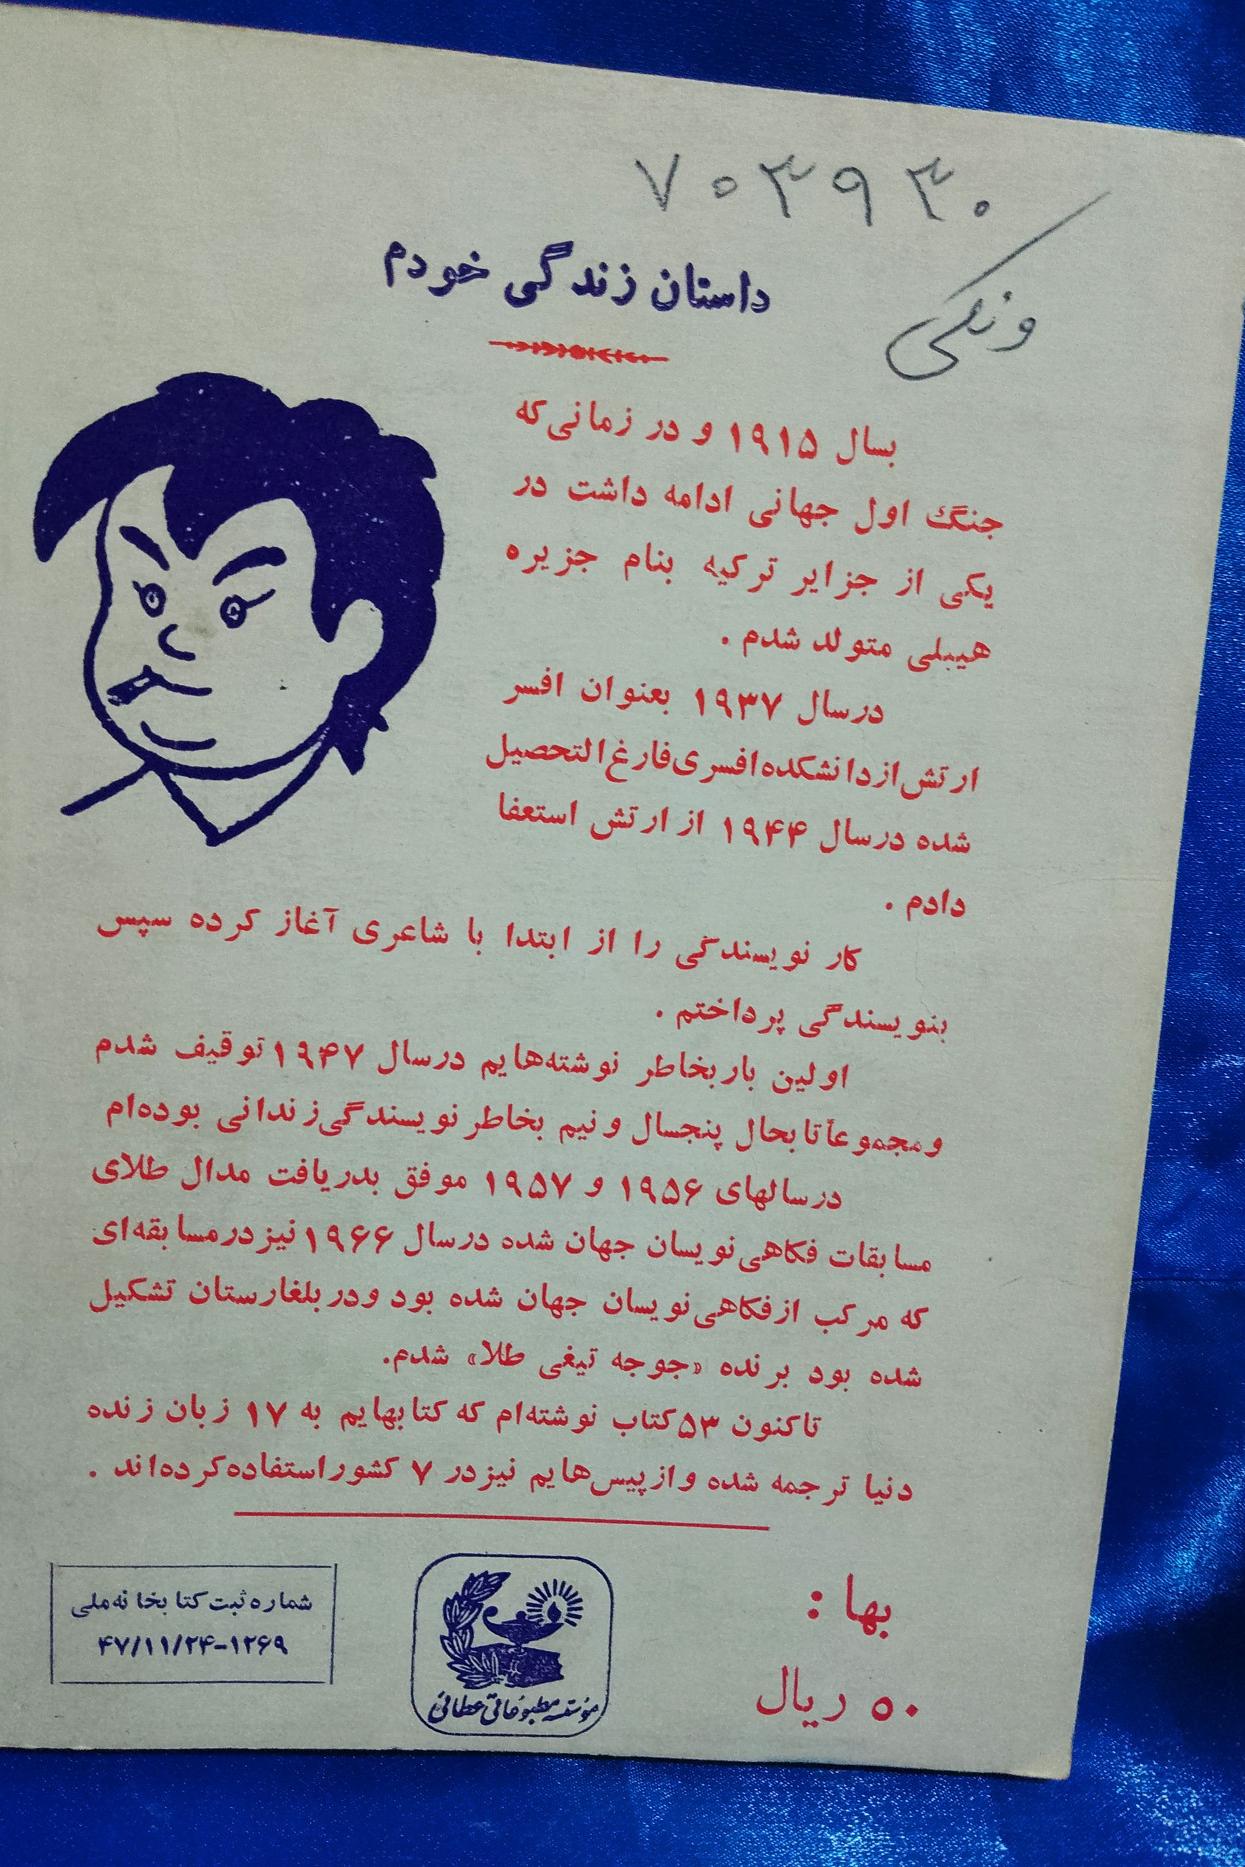 ۷۰۳۹۳۰
داستان زندگی خودم
بسال ۱۹۱۵ و در زمانی‌که
جنگ اول جهانی ادامه داشت در
یکی از جزایر ترکیه بنام جزیره
هیبلی متولد شدم .
درسال ۱۹۳۷ بعنوان افسر
ارتش از دانشکده افسری فارغ‌التحصیل
شده درسال ۱۹۴۴ از ارتش استعفا
دادم .
کار نویسندگی را از ابتدا با شاعری آغاز کرده سپس
بنویسندگی پرداختم .
اولین بار بخاطر نوشته‌هایم درسال ۱۹۴۷ توقیف شدم
و مجموعاً تابحال پنجسال و نیم بخاطر نویسندگی زندانی بوده‌ام
درسالهای ۱۹۵۶ و ۱۹۵۷ موفق بدریافت مدال طلای
مسابقات فکاهی‌نویسان جهان شده درسال ۱۹۶۶ نیز درمسابقه‌ای
که مرکب از فکاهی‌نویسان جهان شده بود و در بلغارستان تشکیل
شده بود برنده «جوجه تیغی طلا» شدم.
تاکنون ۵۳ کتاب نوشته‌ام که کتابهایم به ۱۷ زبان زنده
دنیا ترجمه شده و از پیس‌هایم نیز در ۷ کشور استفاده کرده‌اند .
بها :
۵۰ ریال
موسسه مطبوعاتی عطائی
شماره ثبت کتابخانه ملی
۱۲۶۹-۴۷/۱۱/۲۴